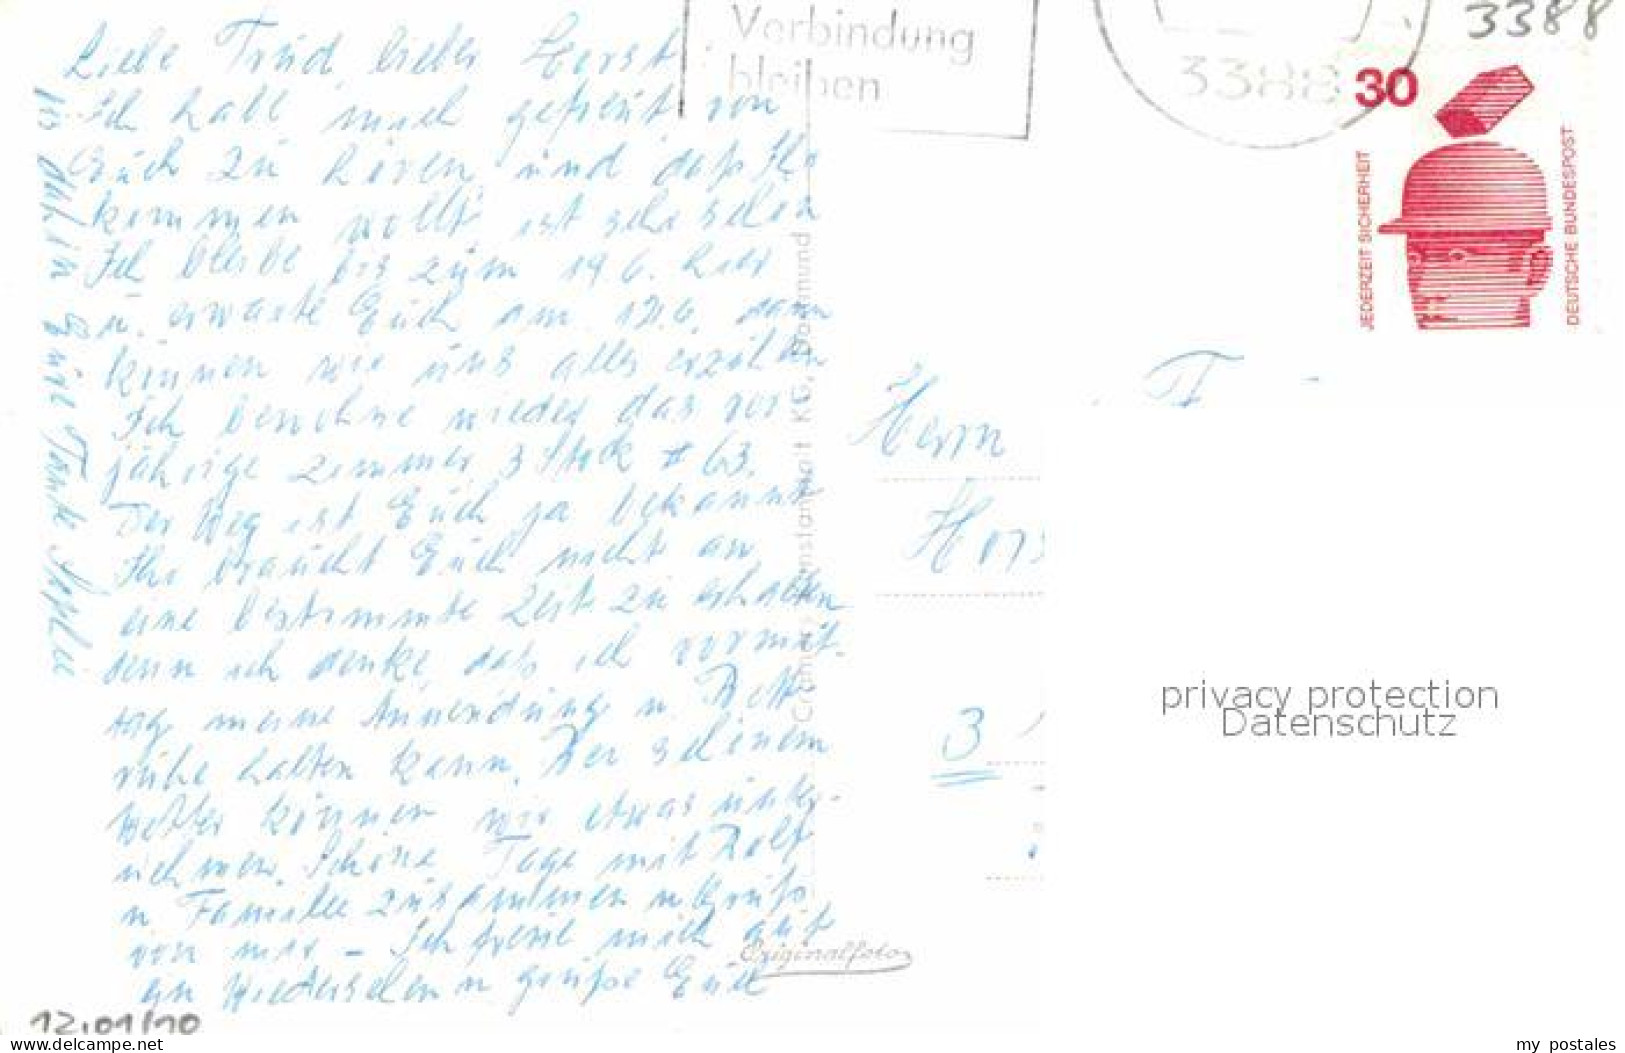 Verbindung
bleiben
3388
3388
30
JEDERZEIT SICHERHEIT
DEUTSCHE BUNDESPOST
Liebe Trud, lieber Horst
Ich habe mich gefreut von
Euch zu hören, und daß Ihr
kommen wollt ist sehr schön
Ich bleibe bis zum 19.6. hier
u. erwarte Euch am 12.6. dann
können wir uns alles erzählen
Ich bewohne wieder das vor-
jährige Zimmer 3 Stock # 63.
Der Weg ist Euch ja bekannt
Ihr braucht Euch nicht an
eine bestimmte Zeit zu erhalten
denn ich denke, daß ich vormit-
tag meine Anwendung u. Bett-
ruhe halten kann. Bei schönem
Wetter können wir etwas unter-
nehmen. Schöne Tage mit Rolf
u Familie zusammen u Gruß
von mir - Ich freue mich auf
ein Wiedersehen u grüße Euch
Eure Tante Sophie
Herrn
Hors
3
Cramers Kunstanstalt KG, Dortmund
Originalfoto
privacy protection
Datenschutz
12.01/10
delcampe.net
my_postales